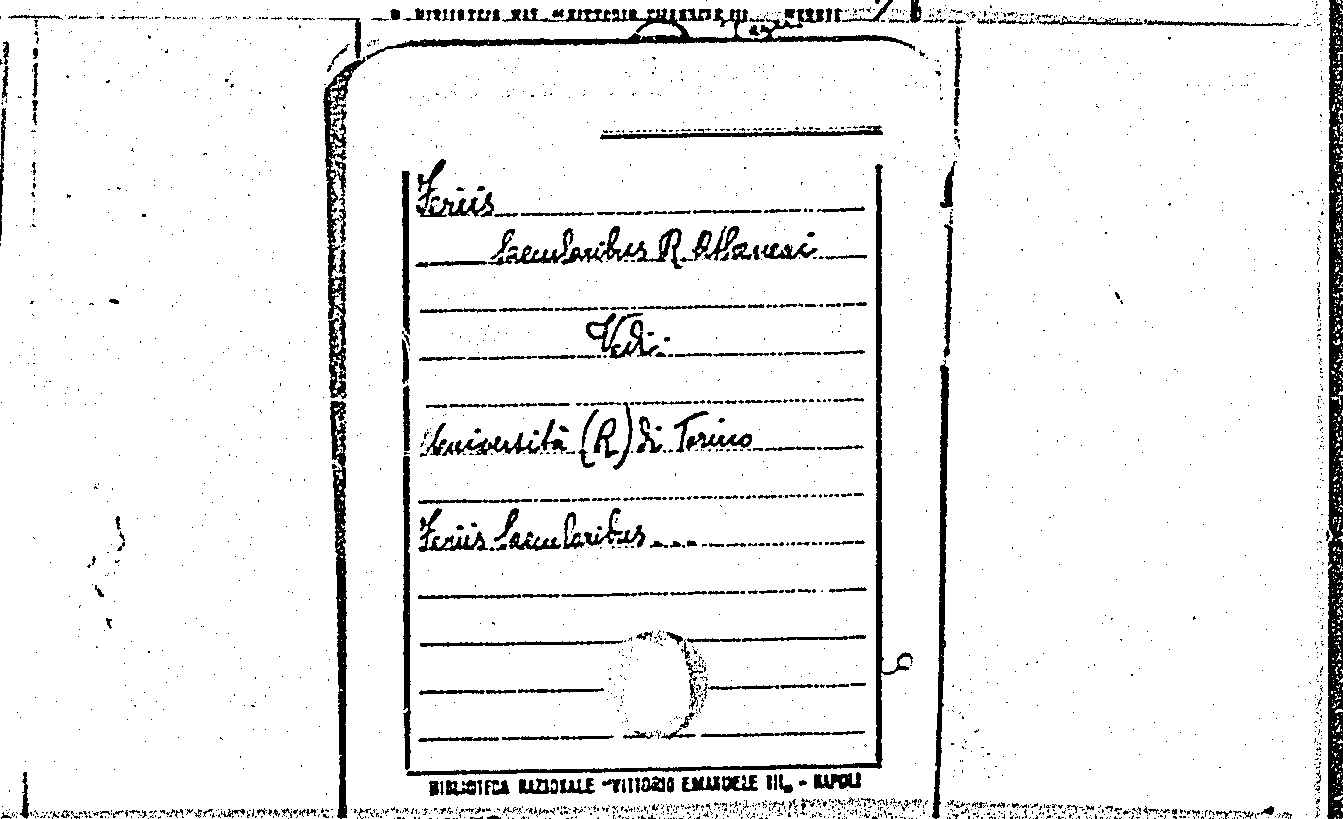 Feriis
saecularibus R. Athenaei
Vedi:
Università (R) di Torino
Feriis saecularibus...
BIBLIOTECA NAZIONALE "VITTORIO EMANUELE III„ - NAPOLI